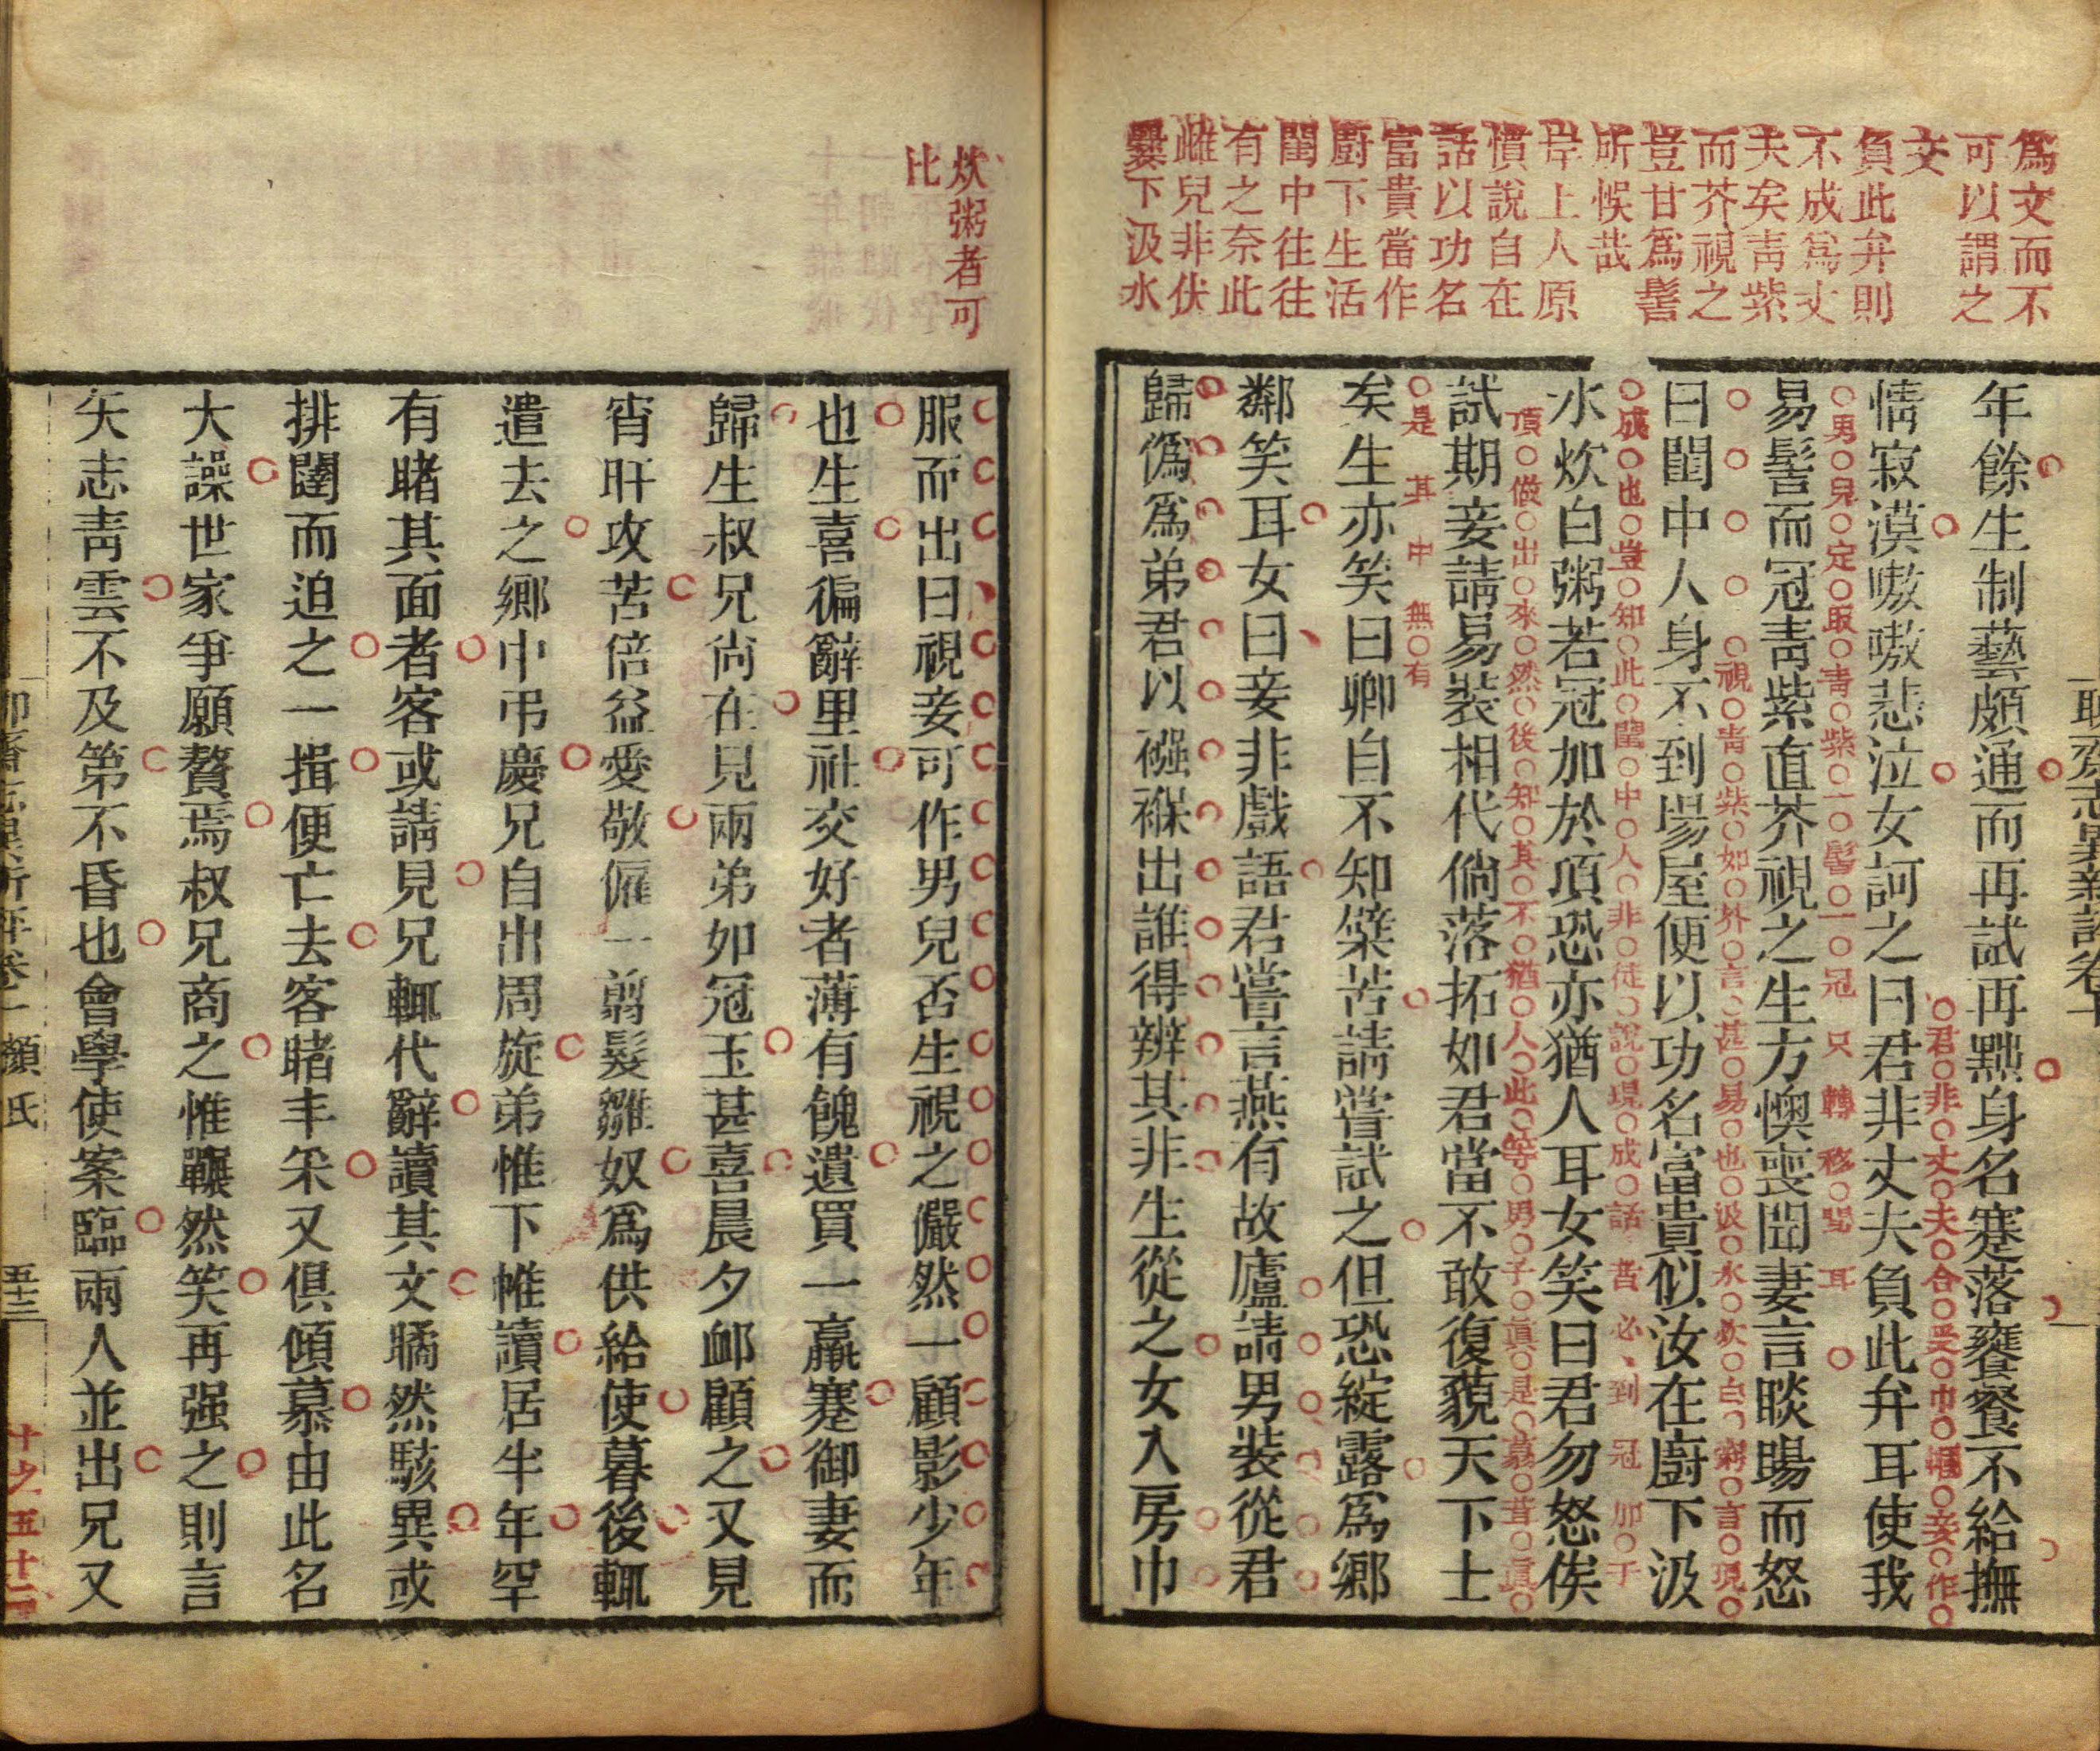 聊齋志異新評卷十
爲文而不
可以謂之
文
負此弁則
不成爲丈
夫矣青紫
而芥視之
豈甘爲髻
所悞哉
岸上人原
慣說自在
話以功名
富貴當作
廚下生活
閨中往往
有之奈此
雌兒非伏
爨下汲水
年餘生制藝頗通而再試再黜身名蹇落饔餐不給撫
君非丈夫合是巾幗妾作
情寂漠嗷嗷悲泣女訶之曰君非丈夫負此弁耳使我
男兒定取青紫一髻一冠只轉移間耳
易髻而冠青紫直芥視之生方懊喪聞妻言睒暘而怒
視青紫如外言甚易也汲水炊白粥言現
曰閨中人身不到場屋便以功名富貴似汝在廚下汲
成也豈知此閨中人非徒說現成話者必到冠加于
水炊白粥若冠加於頂恐亦猶人耳女笑曰君勿怒俟
頂做出來然後知其不猶人此等男子眞是
試期妾請易裝相代倘落拓如君當不敢復藐天下士
是其中無有
矣生亦笑曰卿自不知蘗苦請嘗試之但恐綻露爲鄉
鄰笑耳女曰妾非戲語君嘗言燕有故廬請男裝從君
歸僞爲弟君以襁褓出誰得辨其非生從之女入房巾
炊粥者可
比
服而出曰視妾可作男兒否生視之儼然一顧影少年
也生喜徧辭里社交好者薄有餽遺買一羸蹇御妻而
歸生叔兄尚在見兩弟如冠玉甚喜晨夕卹顧之又見
宵旰攻苦倍益愛敬僱一剪髮雛奴爲供給使暮後輒
遣去之鄉中弔慶兄自出周旋弟惟下帷讀居半年罕
有睹其面者客或請見兄輒代辭讀其文瞲然駭異或
排闥而迫之一揖便亡去客睹丰采又俱傾慕由此名
大譟世家爭願贅焉叔兄商之惟囅然笑再强之則言
矢志青雲不及第不昏也會學使案臨兩人並出兄又
聊齋志異新評卷十 顏氏 五十三
十之五十三